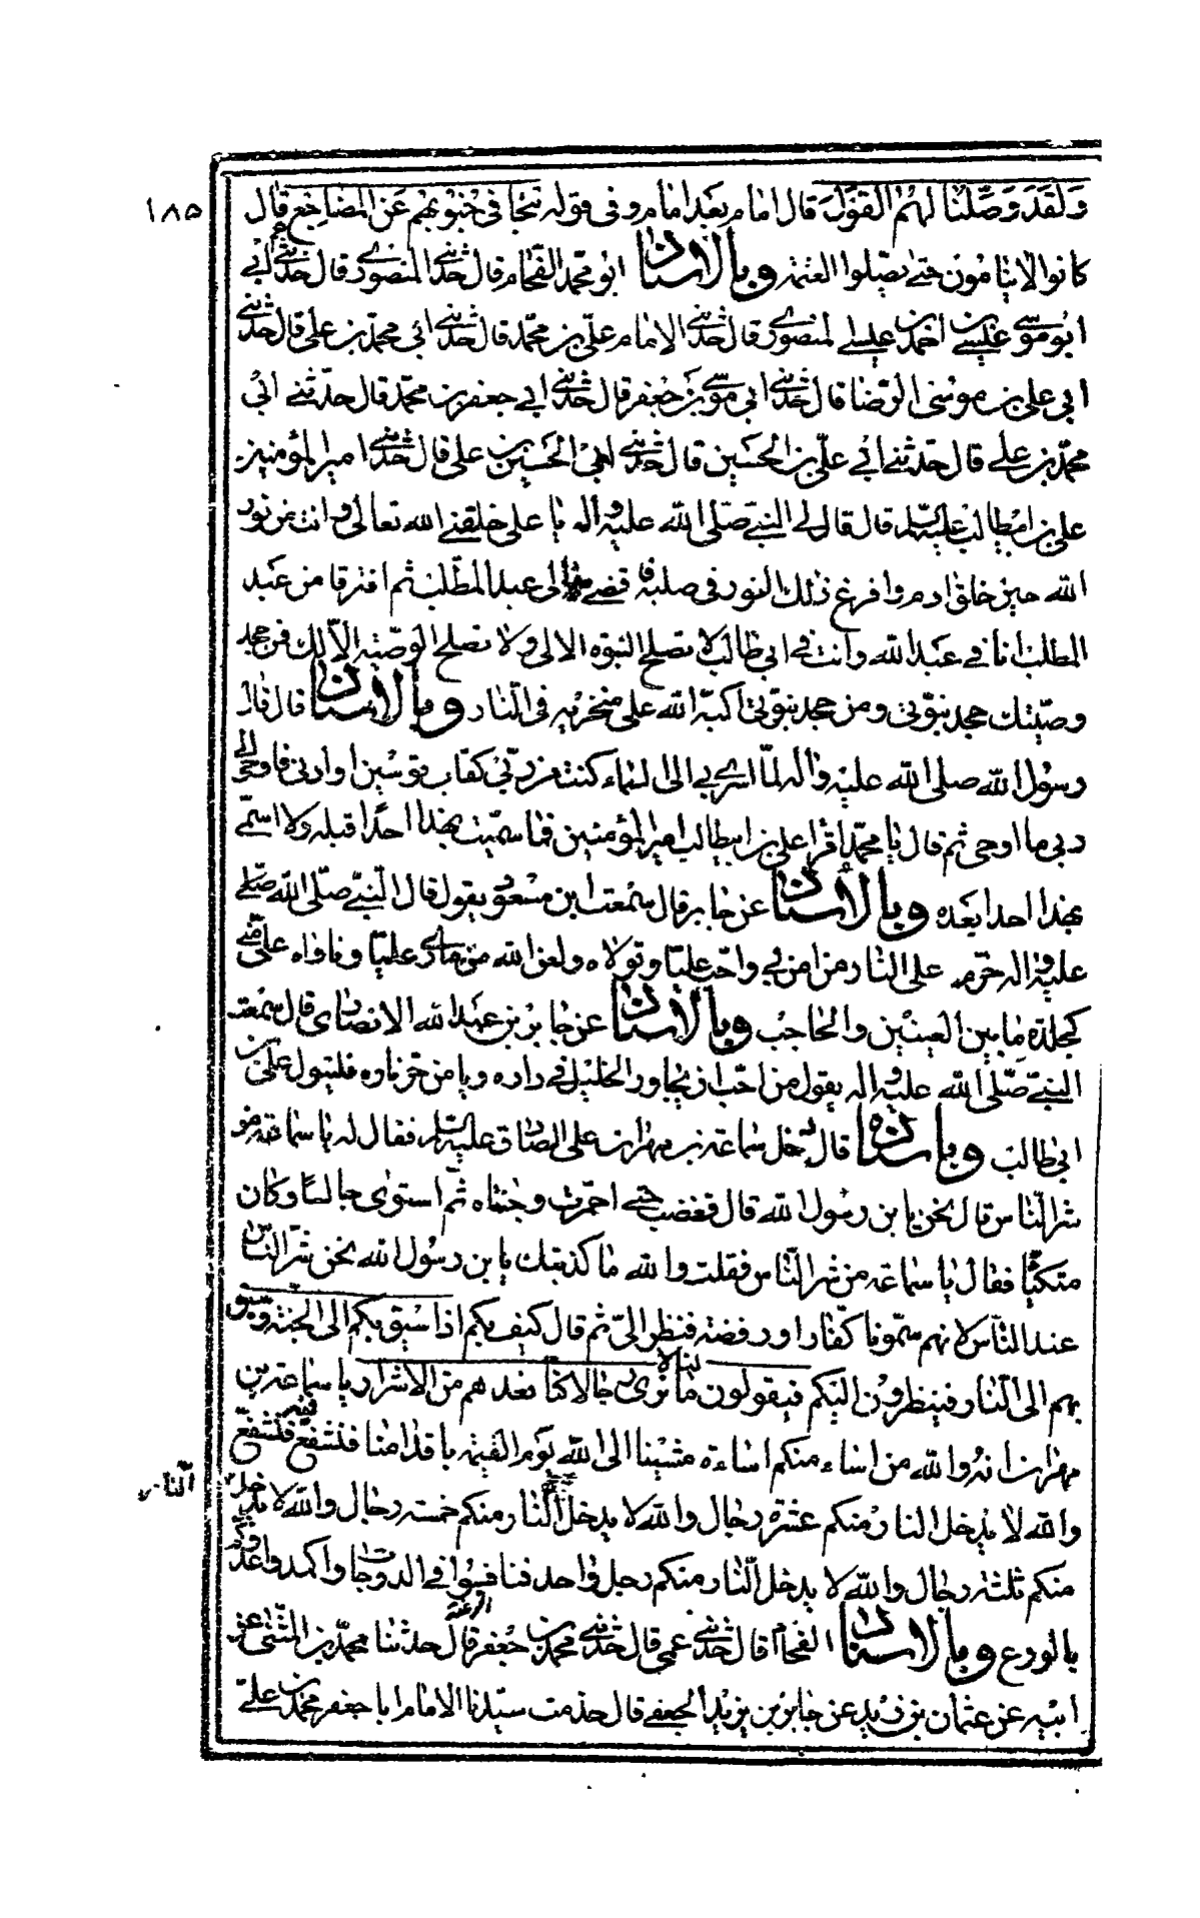 ١٨٥
وَلَقَد وَصَّلْنَا لَهُمُ القَولَ قال امام بعد امام وفى قوله تتجافى جنوبهم عن المضاجع قال
كانوا لا ينامون حتى يصلوا العتمة وبالاسناد ابو محمد الفحام قال حدثنى المنصورى قال حدثنى عم ابى
ابو موسى عيسى بن احمد بن عيسى المنصورى قال حدثنى الامام على بن محمد قال حدثنى ابى محمد بن على قال حدثنى
ابى على بن موسى الرضا قال حدثنى ابى موسى بن جعفر قال حدثنى ابى جعفر بن محمد قال حدثنى ابى
محمد بن على قال حدثنى ابى على بن الحسين قال حدثنى ابى الحسين بن على قال حدثنى امير المؤمنين
على بن ابيطالب عليه السلم قال قال لى النبى صلى الله عليه واله يا على خلقنى الله تعالى وانت من نور
الله حين خلق ادم وافرغ ذلك النور فى صلبه فافضى الى عبد المطلب ثم افترقا من عبد
المطلب انا فى عبد الله وانت فى ابى طالب لا تصلح النبوه الا لى ولا تصلح الوصية الا لك فمن جحد
وصيتك جحد نبوتى ومن جحد نبوتى اكبه الله على منخريه فى النار وبالاسناد قال قال
رسول الله صلى الله عليه واله لما اسرى بى الى السماء كنت من ربى كقاب قوسين او ادنى فاوحى الى
ربى ما اوحى ثم قال يا محمد اقرا على بن ابيطالب امير المؤمنين فما سميت بهذا احدا قبله ولا اسمى
بهذا احدا بعده وبالاسناد عن جابر قال سمعت ابن مسعود يقول قال النبى صلى الله صلى
عليه واله حرم على النار من امن بى واحب عليا وتولاه ولعن الله من مارى عليا وناواه على منى
كجلدة ما بين العينين والحاجب وبالاسناد عن جابر بن عبد الله الانصارى قال سمعت
النبى صلى الله عليه واله يقول من احب ان يجاور الخليل فى داره ويامن حر ناره فليتول على بن
ابى طالب وباسناده قال دخل سماعة بن مهران على الصادق عليه السلم فقال له يا سماعة من
شر الناس قال نحن يا بن رسول الله قال فغضب حتى احمرت وجنتاه ثم استوى جالسا وكان
متكئا فقال يا سماعة من شر الناس فقلت والله ما كذبتك يا بن رسول الله نحن شر الناس
عند الناس لانهم سمونا كفارا ورفضة فنظر الى ثم قال كيف بكم اذا سيق بكم الى الجنة وسيق
بهم الى النار فينظرون اليكم فيقولون ما لنا لا نرى رجالا كنا نعدهم من الاشرار يا سماعة بن
مهران انه والله من اساء منكم اساءة مشينا الى الله يوم القيمة باقدامنا فنشفع فيه فنشفع
والله لا يدخل النار منكم عشرة رجال والله لا يدخل النار منكم خمسة رجال والله لا يدخل النار
منكم ثلثة رجال والله لا يدخل النار منكم رجل واحد فتنافسوا فى الدرجات واكمدوا عدوكم
بالورع وبالاسناد الفحام قال حدثنى عمى قال حدثنى محمد بن جعفر قال حدثنا محمد بن المثنى عن
ابيه عن عثمان بن زيد عن جابر بن يزيد الجعفى قال خدمت سيدنا الامام ابا جعفر محمد بن على